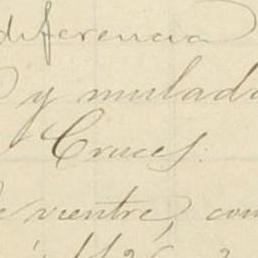 diferencia
y mulad
Cruces.
vientre, con